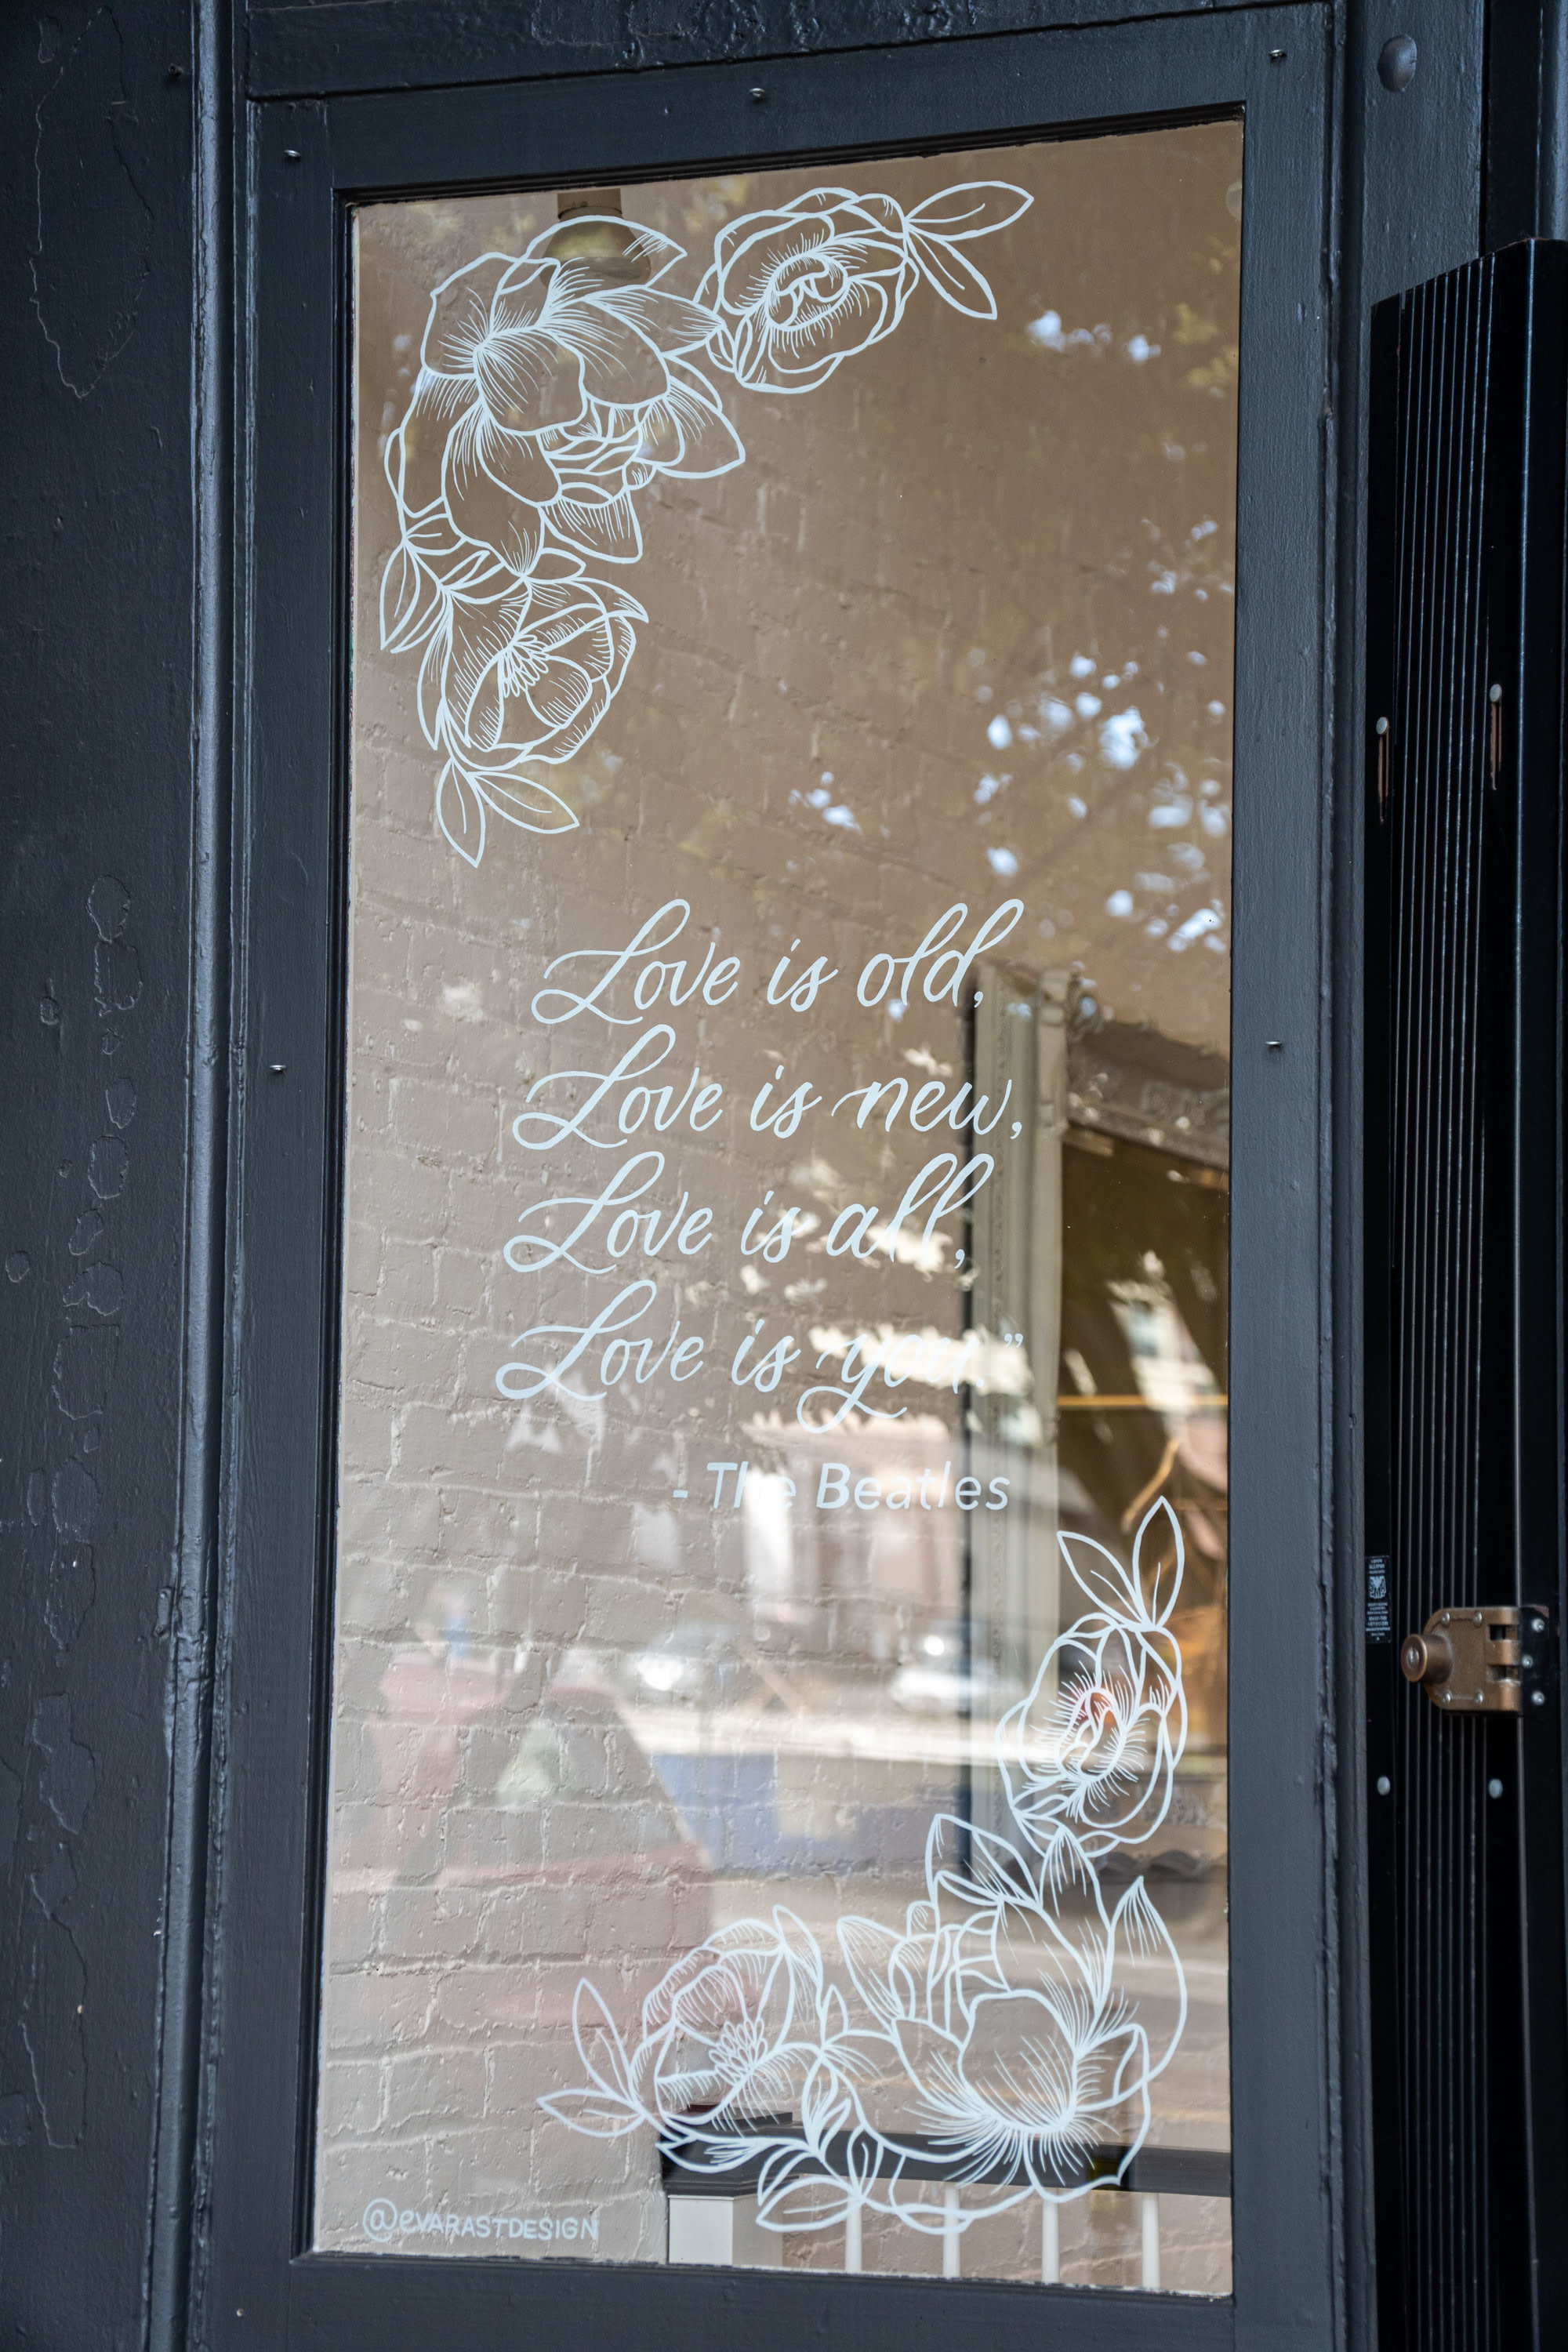 Love is old,
Love is new,
Love is all,
Love is you"
- The Beatles
@EVARASTDESIGN